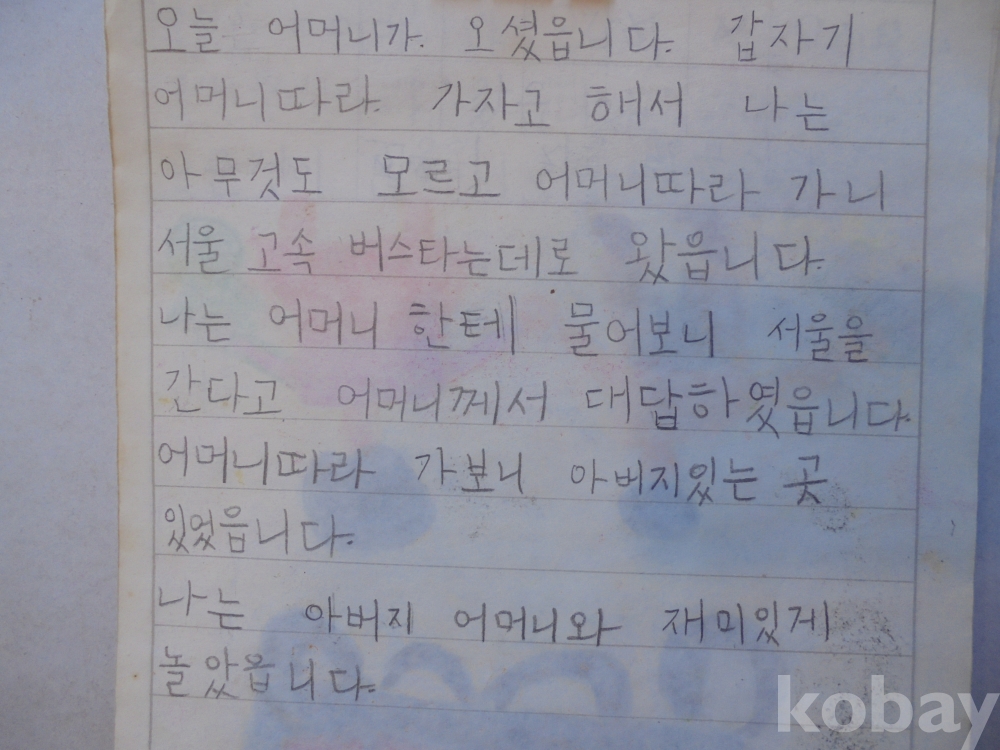 오늘 어머니가. 오셨읍니다. 갑자기
어머니따라. 가자고 해서 나는
아무것도 모르고 어머니따라 가니
서울 고속 버스타는데로 왔읍니다.
나는 어머니 한테 물어보니 서울을
간다고 어머니께서 대답하였읍니다.
어머니따라 가보니 아버지있는 곳
있었읍니다.
나는 아버지 어머니와 재미있게
놀았읍니다.
kobay